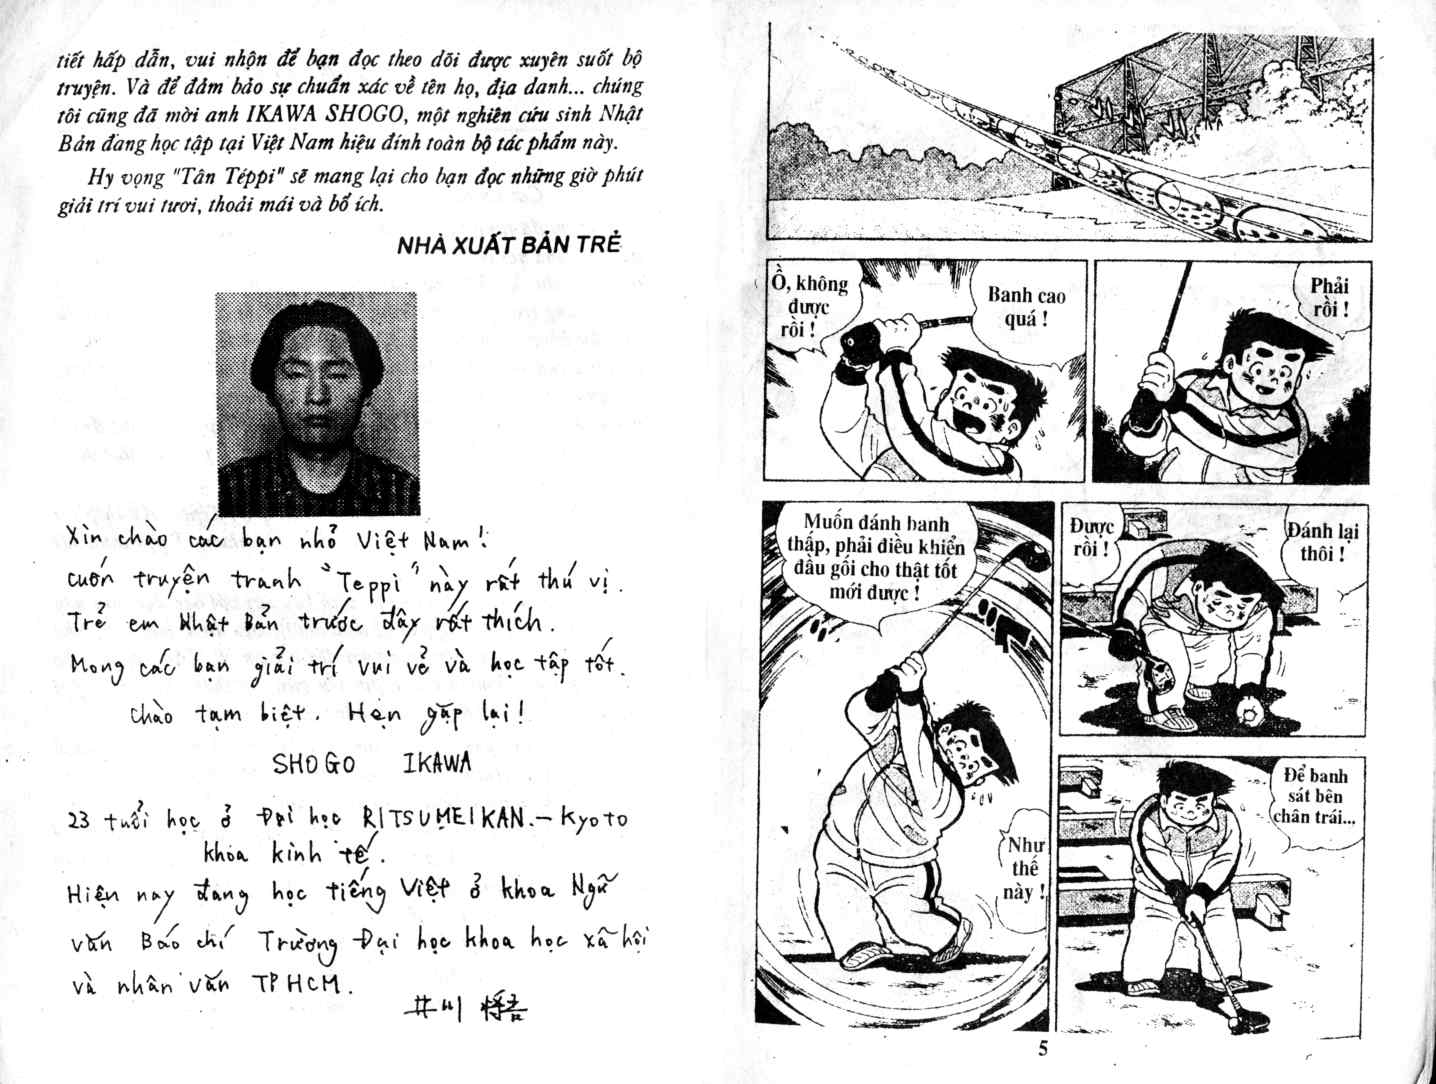 tiết hấp dẫn, vui nhộn để bạn đọc theo dõi được xuyên suốt bộ
truyện. Và để đảm bảo sự chuẩn xác về tên họ, địa danh... chúng
tôi cũng đã mời anh IKAWA SHOGO, một nghiên cứu sinh Nhật
Bản đang học tập tại Việt Nam hiệu đính toàn bộ tác phẩm này.
Hy vọng "Tân Téppi" sẽ mang lại cho bạn đọc những giờ phút
giải trí vui tươi, thoải mái và bổ ích.
NHÀ XUẤT BẢN TRẺ
Xin chào các bạn nhỏ Việt Nam!
Cuốn truyện tranh "Teppi" này rất thú vị.
Trẻ em Nhật Bản trước đây rất thích.
Mong các bạn giải trí vui vẻ và học tập tốt.
chào tạm biệt. Hẹn gặp lại!
SHOGO IKAWA
23 tuổi học ở Đại học RITSUMEIKAN.-Kyoto
khoa kinh tế.
Hiện nay đang học tiếng Việt ở khoa Ngữ
văn Báo chí Trường Đại học khoa học xã hội
và nhân văn TPHCM.
井川 将吾
Ồ, không
được
rồi !
Banh cao
quá !
Phải
rồi !
Muốn đánh banh
thấp, phải điều khiển
đầu gối cho thật tốt
mới được !
Như
thế
này !
Được
rồi !
Đánh lại
thôi !
Để banh
sát bên
chân trái...
5